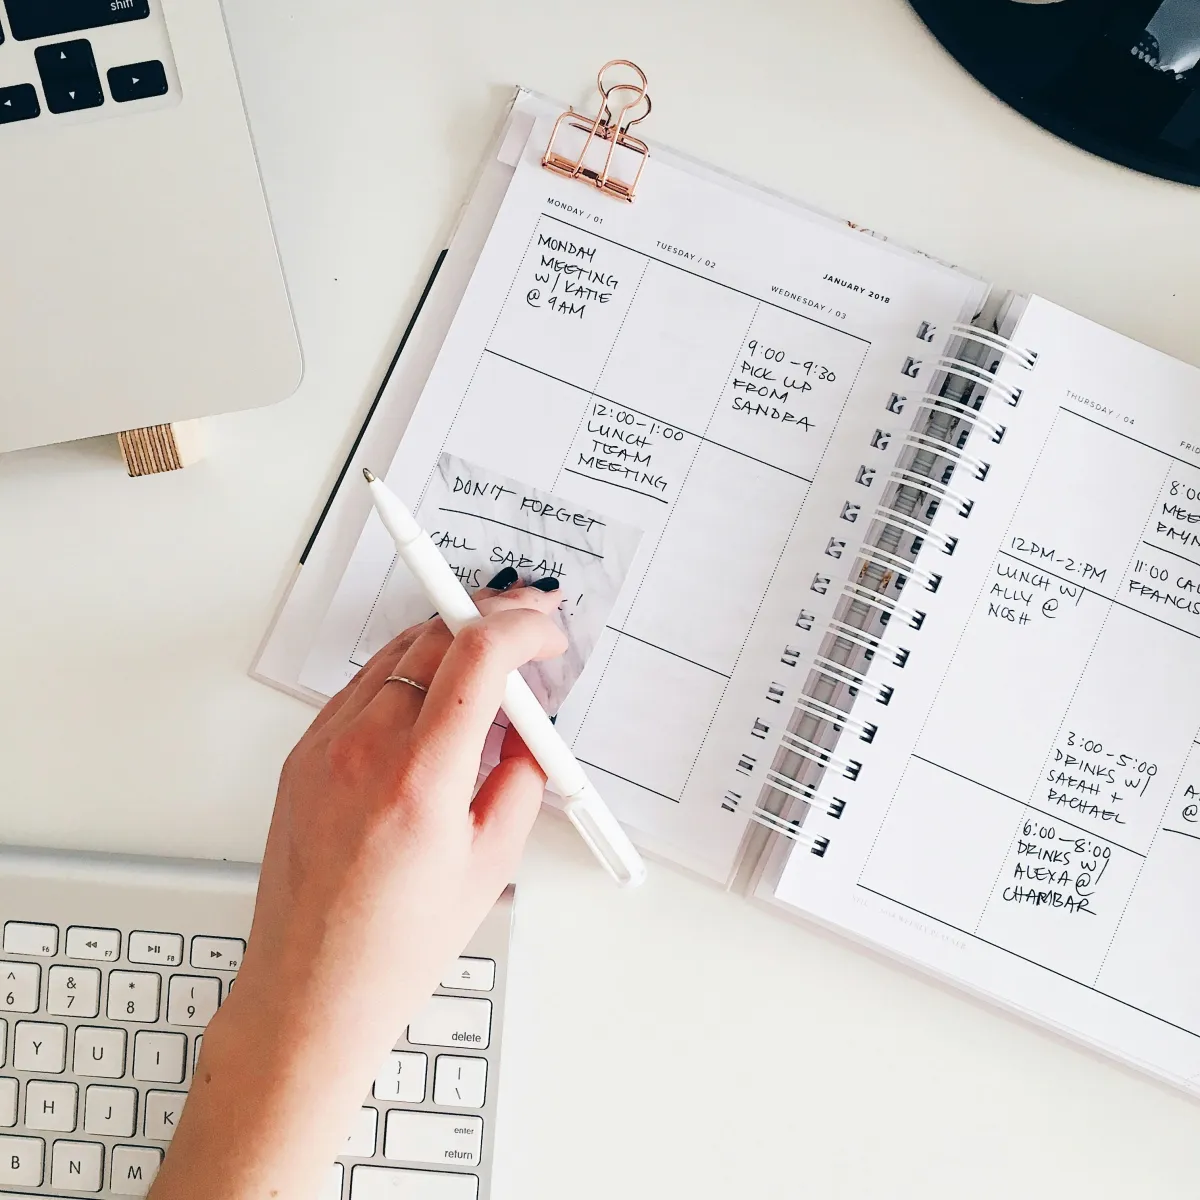 shift
MONDAY / 01
MONDAY
MEETING
W/ KATIE
@ 9AM
TUESDAY / 02
12:00-1:00
LUNCH
TEAM
MEETING
JANUARY 2018
WEDNESDAY / 03
9:00-9:30
PICK UP
FROM
SANDRA
DON'T FORGET
CALL SARAH
THIS
THURSDAY / 04
12PM-2:PM
LUNCH W/
ALLY @
NOSH
8:00
11:00
3:00-5:00
DRINKS W/
SARAH +
RACHAEL
6:00-8:00
DRINKS W/
ALEXA @
CHAMBAR
@
F6
F7
F8
F9
^
6
&
7
*
8
(
9
delete
Y
U
I
}
]
|
\
H
J
K
enter
return
B
N
M